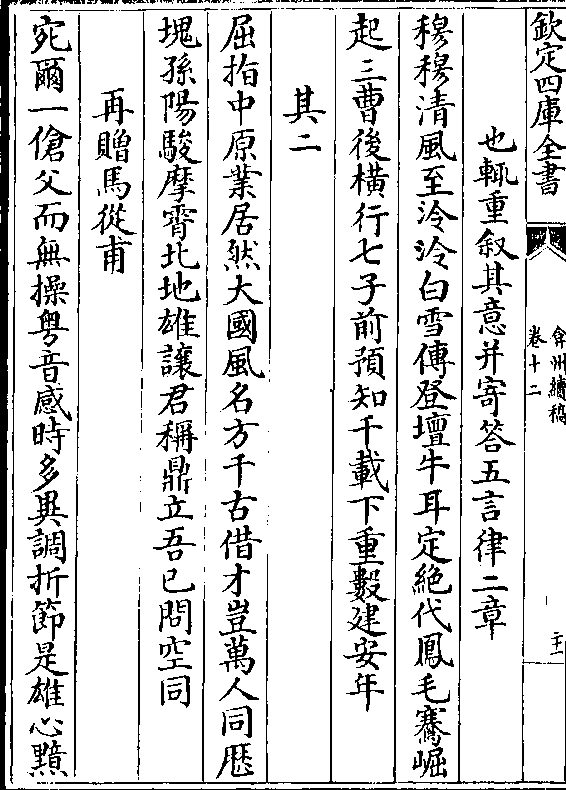 欽定四庫全書
弇州續稿
卷十二
二十一
也輒重叙其意并寄答五言律二章
穆穆清風至泠泠白雪傳登壇牛耳定絶代鳳毛騫崛
起三曹後橫行七子前預知千載下重數建安年
其二
屈指中原業居然大國風名方千古借才豈萬人同歴
塊孫陽駿摩霄北地雄讓君稱鼎立吾已問空同
再贈馬從甫
宛爾一傖父而無操粤音感時多異調折節是雄心黯